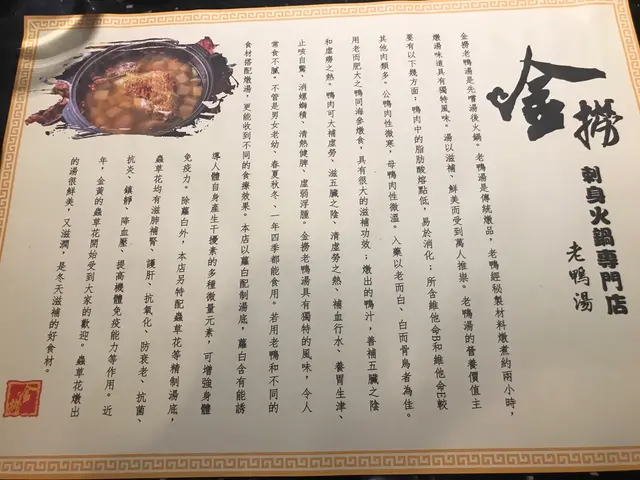 金撈
刺身火鍋專門店
老鴨湯
金撈老鴨湯是先嚐湯後火鍋。老鴨湯是傳統燉品，老鴨經秘製材料燉煮約兩小時，
燉湯味道具有獨特風味，湯以滋補、鮮美而受到萬人推崇。老鴨湯的營養價值主
要有以下幾方面：鴨肉中的脂肪酸熔點低，易於消化；所含維他命B和維他命E較
其他肉類多。公鴨肉性微寒，母鴨肉性微溫。入藥以老而白、白而骨烏者為佳。
用老而肥大之鴨同海參燉食，具有很大的滋補功效；燉出的鴨汁，善補五臟之陰
和虛癆之熱。鴨肉可大補虛勞、滋五臟之陰、清虛勞之熱、補血行水、養胃生津、
止咳自驚、消螺螄積、清熱健脾、虛弱浮腫。金撈老鴨湯具有獨特的風味，令人
常食不膩，不管是男女老幼、春夏秋冬、一年四季都能食用。若用老鴨和不同的
食材搭配燉湯，更能收到不同的食療效果。本店以蘿白配制湯底，蘿白含有能誘
導人體自身產生干擾素的多種微量元素，可增強身體
免疫力。除蘿白外，本店另特配蟲草花等精制湯底，
蟲草花均有滋肺補腎、護肝、抗氧化、防衰老、抗菌、
抗炎、鎮靜、降血壓、提高機體免疫能力等作用。近
年，金黄的蟲草花開始受到大家的歡迎。蟲草花燉出
的湯很鮮美，又滋潤，是冬天滋補的好食材。